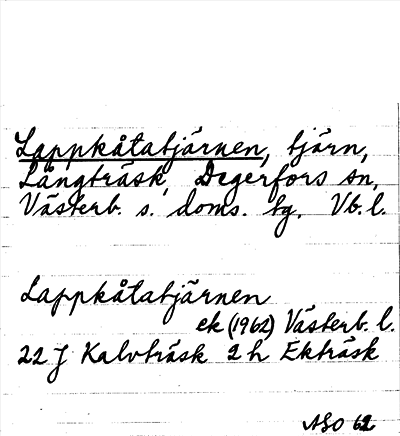 Lappkåtatjärnen, tjärn,
Långträsk, Degerfors sn,
Västerb. s. doms. tg. Vb. l.
Lappkåtatjärnen
ek (1962) Västerb. l.
22 J Kalvträsk 2 h Ekträsk
ASO 62